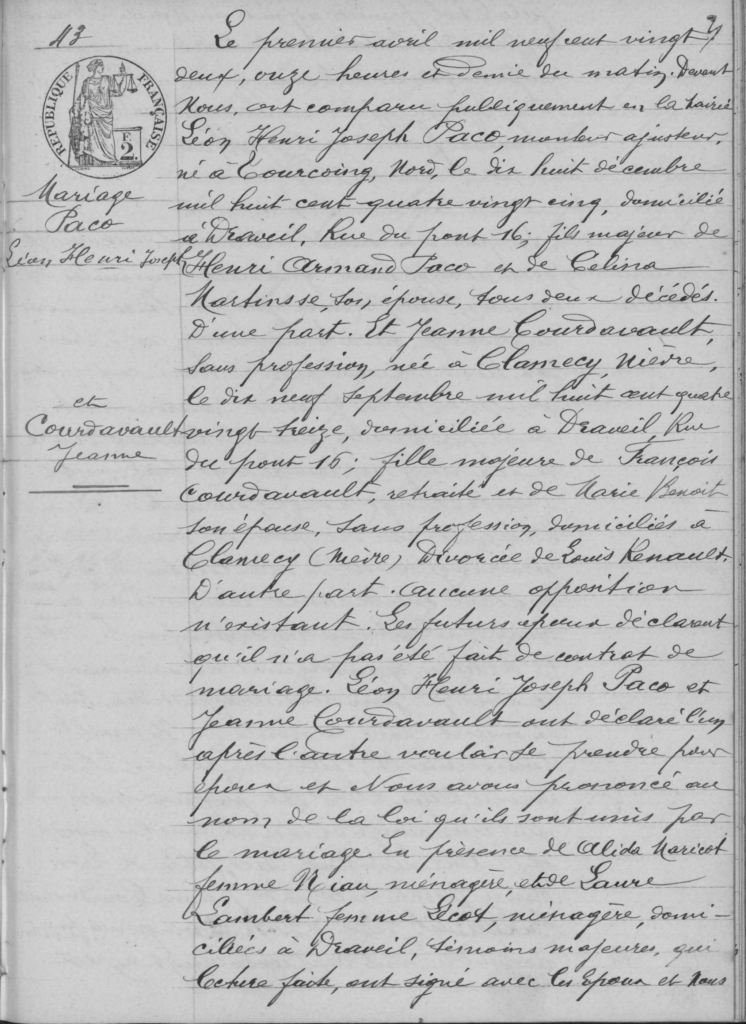 43
RÉPUBLIQUE FRANÇAISE
F
2
Mariage
Paco
Léon Henri Joseph
et
Courdavault
Jeanne
Le premier avril mil neuf cent vingt
deux, onze heures et demie du matin. Devant
Nous, ont comparu publiquement en la Mairie
Léon Henri Joseph Paco, monteur ajusteur,
né à Tourcoing, Nord, le dix huit décembre
mil huit cent quatre vingt cinq, domicilié
à Draveil, Rue du pont 16; fils majeur de
Henri Armand Paco et de Celina
Martinsse, son épouse, tous deux décédés.
D'une part. Et Jeanne Courdavault,
sans profession, née à Clamecy, Nièvre,
le dix neuf Septembre mil huit cent quatre
vingt treize, domiciliée à Draveil, Rue
du pont 16; fille majeure de François
Courdavault, retraité et de Marie Benoit
son épouse, sans profession, domiciliés à
Clamecy (Nièvre) Divorcée de Louis Renault.
D'autre part. Aucune opposition
n'existant. Les futurs époux déclarent
qu'il n'a pas été fait de contrat de
mariage. Léon Henri Joseph Paco et
Jeanne Courdavault ont déclaré l'un
après l'autre vouloir se prendre pour
époux et Nous avons prononcé au
nom de la loi qu'ils sont unis par
le mariage En présence de Alida Maricot
femme Niau, ménagère, et de Laure
Lambert femme Lécot, ménagère, domi-
ciliées à Draveil, témoins majeures, qui
lecture faite, ont signé avec les Epoux et Nous